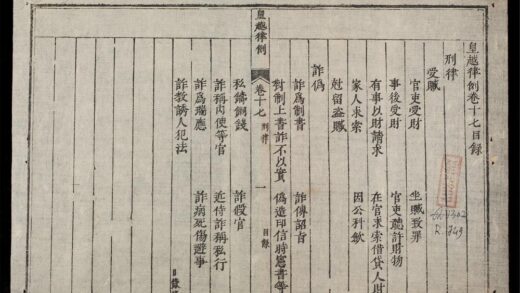 皇越律例卷十七目錄
刑律
受贓
官吏受財 坐贓致罪
事後受財 官吏聽許財物
有事以財請求 在官求索借貸人財
家人求索 因公科歛
尅留盜贓
詐僞
詐爲制書 詐傳詔旨
對制上書詐不以實 僞造印信時憲書等
皇越律例 卷十七 刑律 一 目錄
私鑄銅錢 詐假官
詐稱內使等官 近侍詐稱私行
詐爲瑞應 詐病死傷避事
詐教誘人犯法
目錄